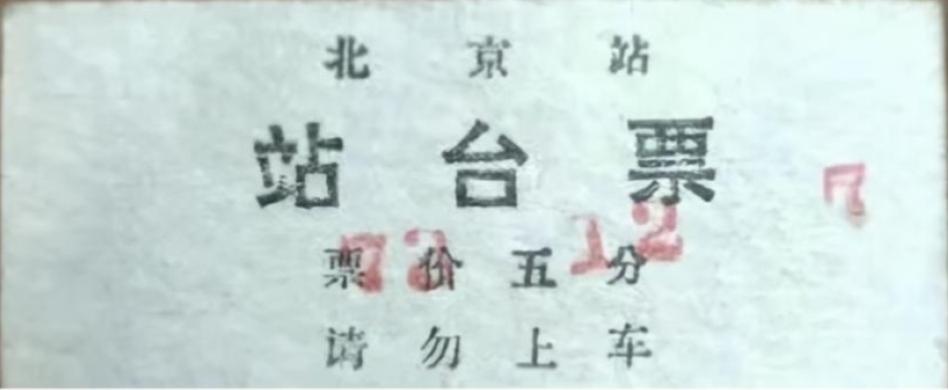 北京站
站台票
票价五分
请勿上车
12
7